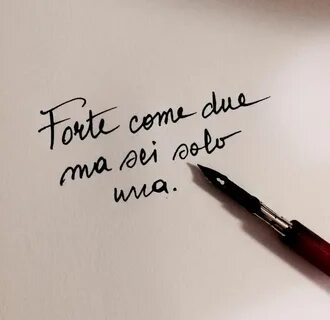 Forte come due
ma sei solo
una.